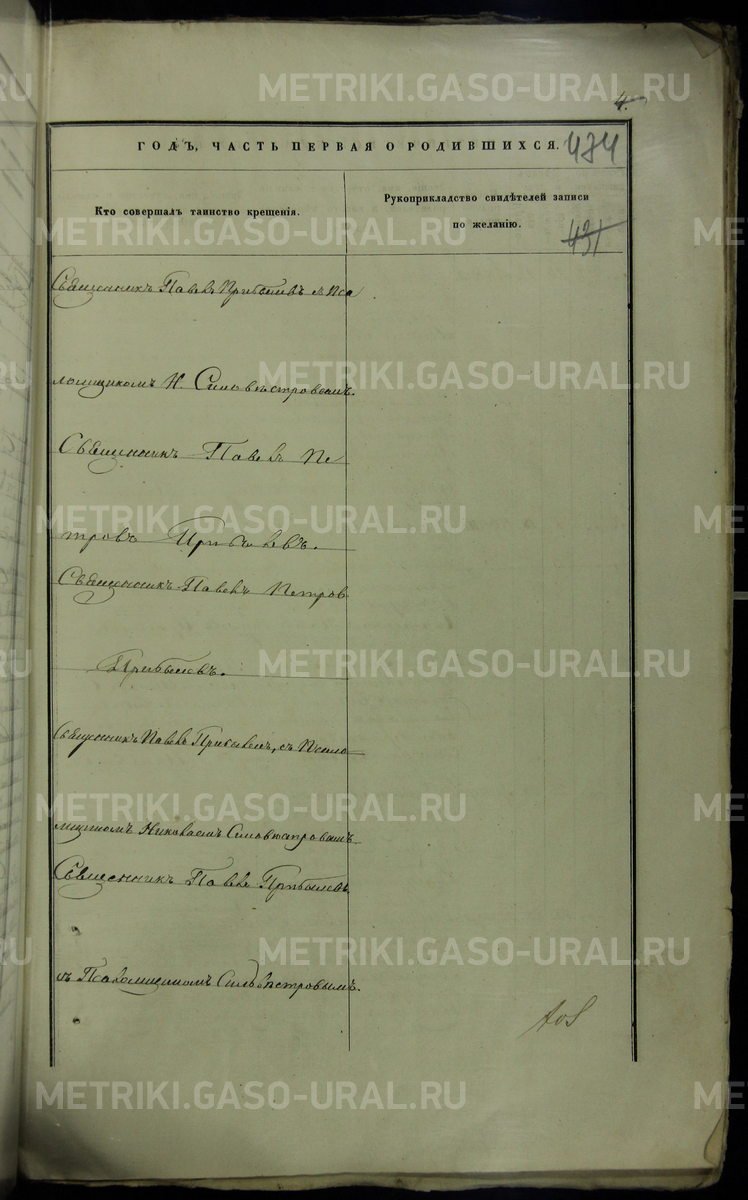 4.
ГОДЪ, ЧАСТЬ ПЕРВАЯ О РОДИВШИХСЯ.
474
Кто совершалъ таинство крещенія.
Рукоприкладство свидѣтелей записи
по желанію.
431
Священникъ Павелъ Прибылевъ съ Пса
ломщикомъ Н. Сильвестровымъ.
Священникъ Павелъ Пе
тровъ Прибылевъ.
Священникъ Павелъ Петров
Прибылевъ.
Священникъ Павелъ Прибылевъ, съ Псало
мщикомъ Николаемъ Сильвестровымъ.
Священникъ Павелъ Прибылевъ
съ Псаломщикомъ Сильвестровымъ.
METRIKI.GASO-URAL.RU